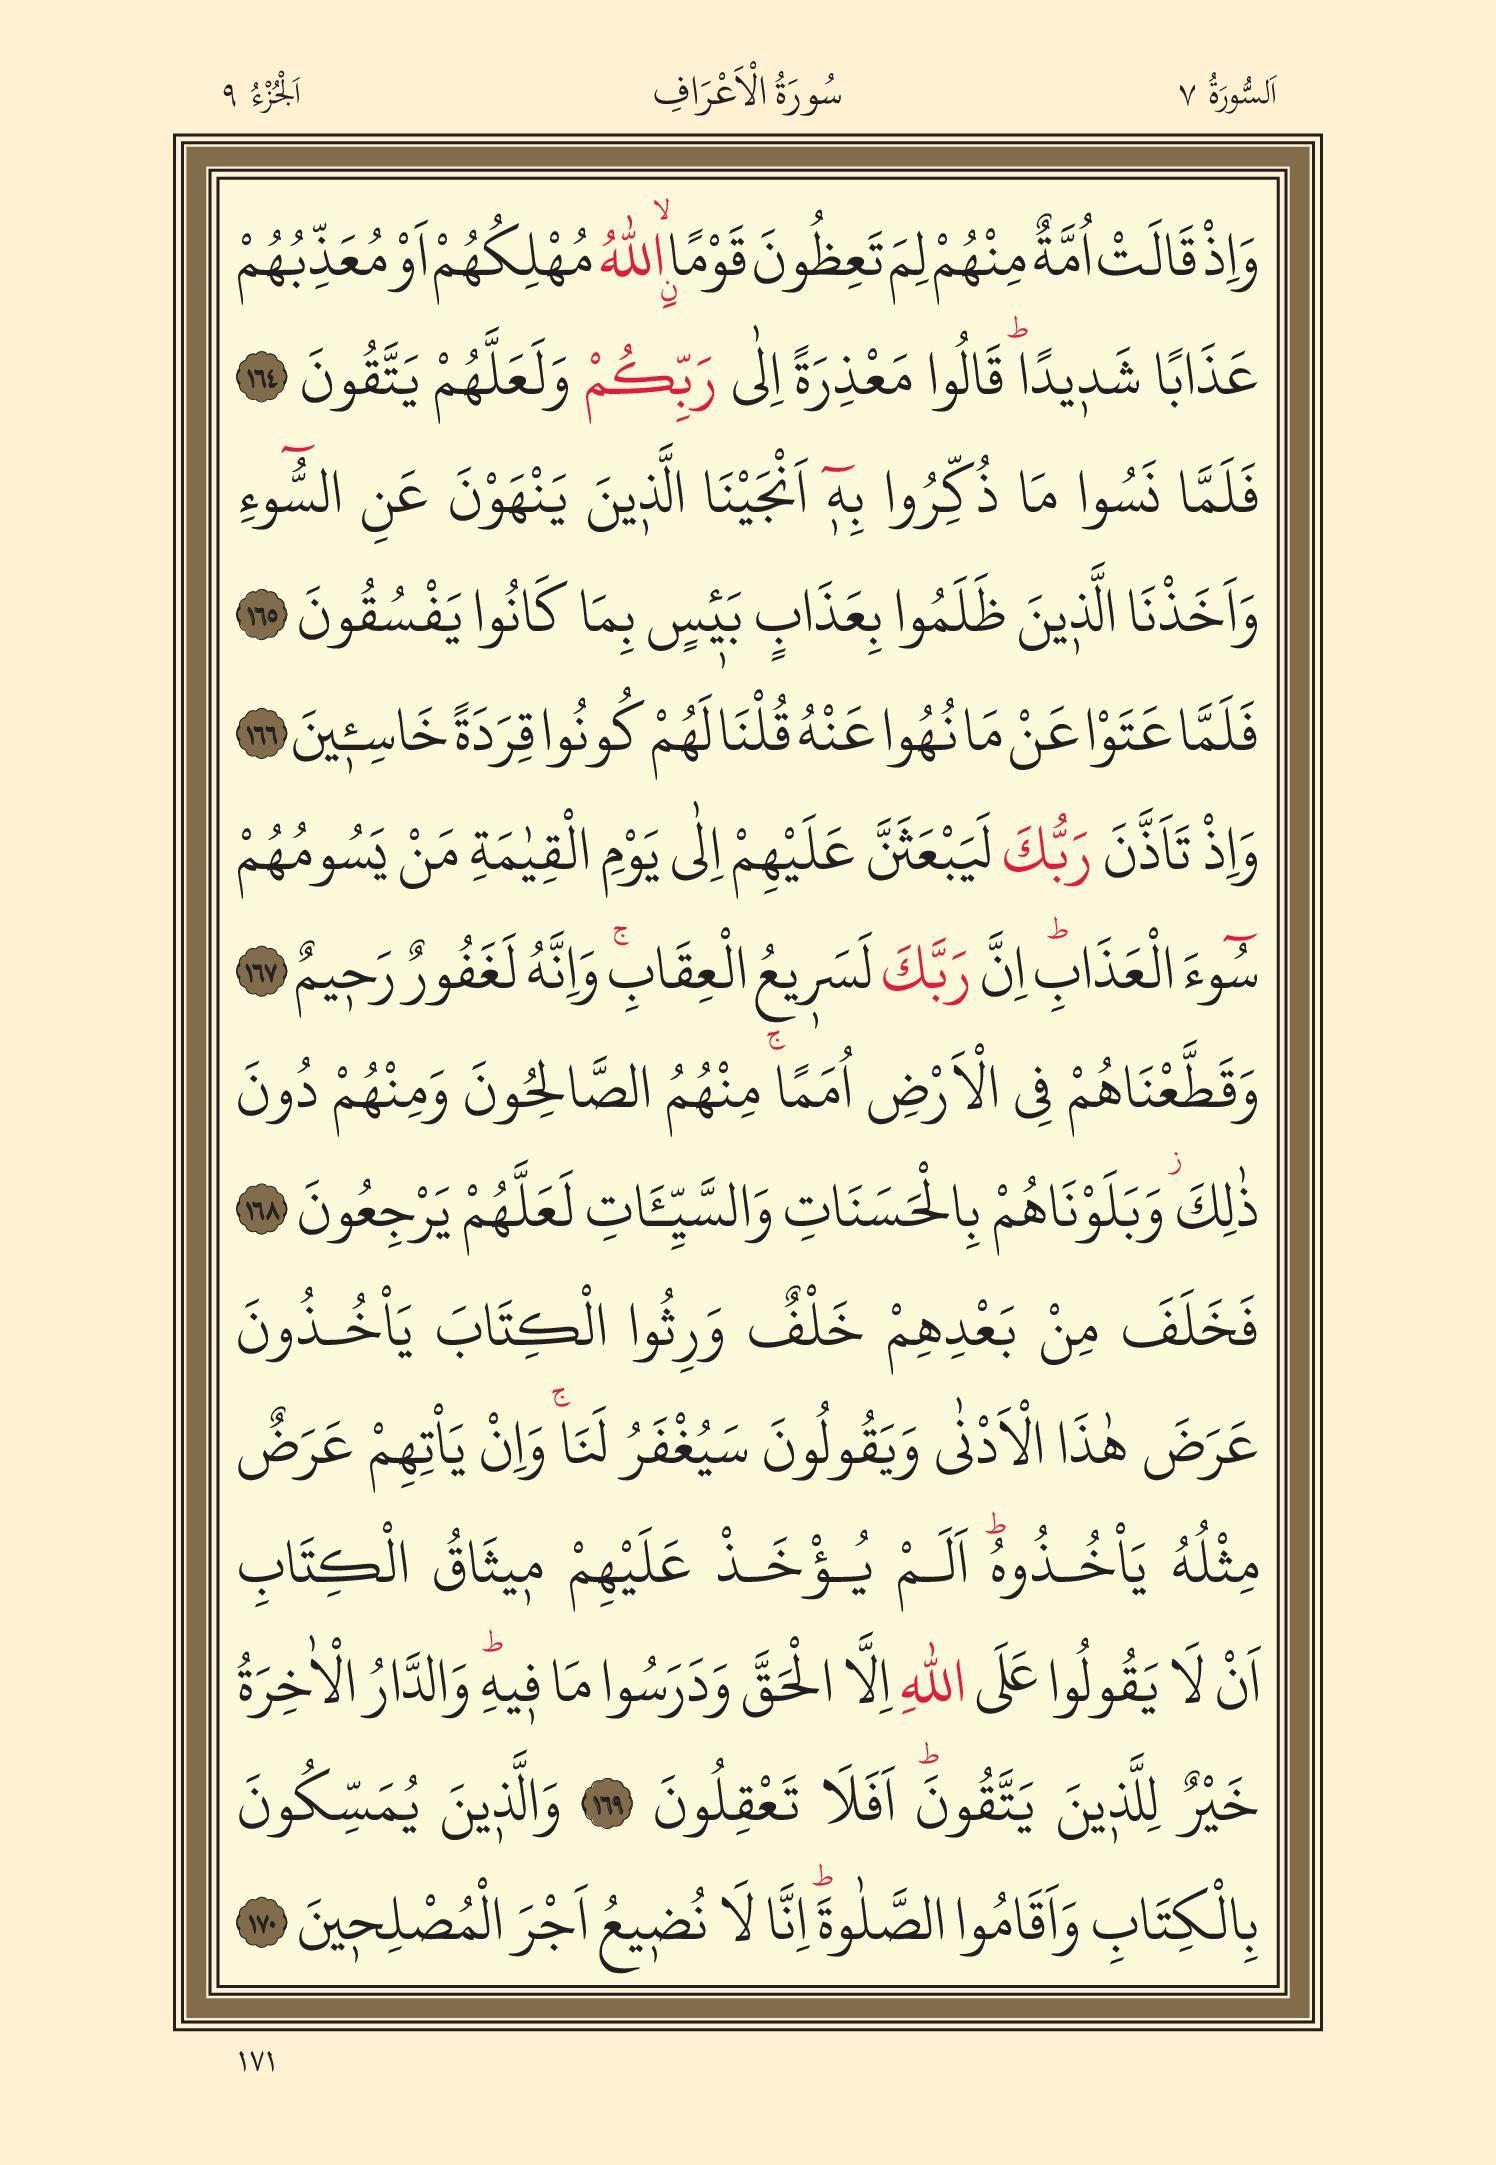 اَلسُّورَةُ ٧ سُورَةُ الْاَعْرَافِ اَلْجُزْءُ ٩
وَاِذْ قَالَتْ اُمَّةٌ مِنْهُمْ لِمَ تَعِظُونَ قَوْمًاۙ نِ اللّٰهُ مُهْلِكُهُمْ اَوْ مُعَذِّبُهُمْ
عَذَابًا شَد۪يدًاۜ قَالُوا مَعْذِرَةً اِلٰى رَبِّكُمْ وَلَعَلَّهُمْ يَتَّقُونَ ﴿١٦٤﴾
فَلَمَّا نَسُوا مَا ذُكِّرُوا بِه۪ٓ اَنْجَيْنَا الَّذ۪ينَ يَنْهَوْنَ عَنِ السُّٓوءِ
وَاَخَذْنَا الَّذ۪ينَ ظَلَمُوا بِعَذَابٍ بَـ۪ٔيسٍ بِمَا كَانُوا يَفْسُقُونَ ﴿١٦٥﴾
فَلَمَّا عَتَوْا عَنْ مَا نُهُوا عَنْهُ قُلْنَا لَهُمْ كُونُوا قِرَدَةً خَاسِـ۪ٔينَ ﴿١٦٦﴾
وَاِذْ تَاَذَّنَ رَبُّكَ لَيَبْعَثَنَّ عَلَيْهِمْ اِلٰى يَوْمِ الْقِيٰمَةِ مَنْ يَسُومُهُمْ
سُٓوءَ الْعَذَابِۜ اِنَّ رَبَّكَ لَسَر۪يعُ الْعِقَابِۚ وَاِنَّهُ لَغَفُورٌ رَح۪يمٌ ﴿١٦٧﴾
وَقَطَّعْنَاهُمْ فِى الْاَرْضِ اُمَمًاۚ مِنْهُمُ الصَّالِحُونَ وَمِنْهُمْ دُونَ
ذٰلِكَۘ وَبَلَوْنَاهُمْ بِالْحَسَنَاتِ وَالسَّيِّـَٔاتِ لَعَلَّهُمْ يَرْجِعُونَ ﴿١٦٨﴾
فَخَلَفَ مِنْ بَعْدِهِمْ خَلْفٌ وَرِثُوا الْكِتَابَ يَاْخُذُونَ
عَرَضَ هٰذَا الْاَدْنٰى وَيَقُولُونَ سَيُغْفَرُ لَنَاۚ وَاِنْ يَاْتِهِمْ عَرَضٌ
مِثْلُهُ يَاْخُذُوهُۜ اَلَمْ يُؤْخَذْ عَلَيْهِمْ م۪يثَاقُ الْكِتَابِ
اَنْ لَا يَقُولُوا عَلَى اللّٰهِ اِلَّا الْحَقَّ وَدَرَسُوا مَا ف۪يهِۜ وَالدَّارُ الْاٰخِرَةُ
خَيْرٌ لِلَّذ۪ينَ يَتَّقُونَۜ اَفَلَا تَعْقِلُونَ ﴿١٦٩﴾ وَالَّذ۪ينَ يُمَسِّكُونَ
بِالْكِتَابِ وَاَقَامُوا الصَّلٰوةَۜ اِنَّا لَا نُض۪يعُ اَجْرَ الْمُصْلِح۪ينَ ﴿١٧٠﴾
١٧١